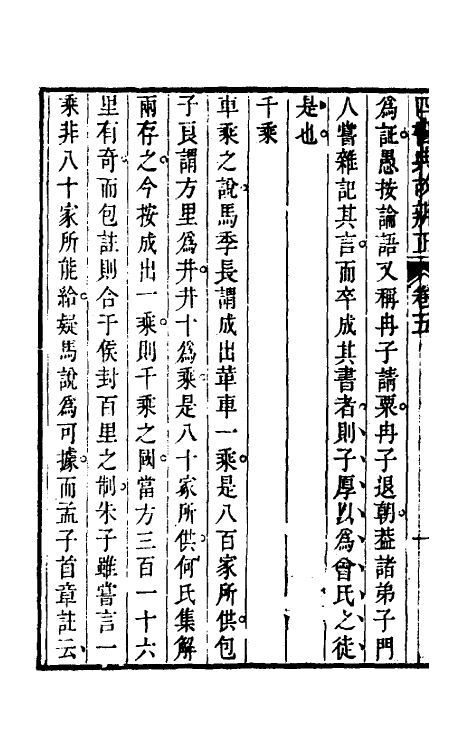 四書典故辨正 卷五 十
爲証愚按論語又稱冉子請粟冉子退朝葢諸弟子門
人嘗雜記其言而卒成其書者則子厚以爲曾氏之徒
是也
千乘
車乘之說馬季長謂成出革車一乘是八百家所供包
子良謂方里爲井井十爲乘是八十家所供何氏集解
兩存之今按成出一乘則千乘之國當方三百一十六
里有奇而包註則合于侯封百里之制朱子雖嘗言一
乘非八十家所能給疑馬說爲可據而孟子首章註云